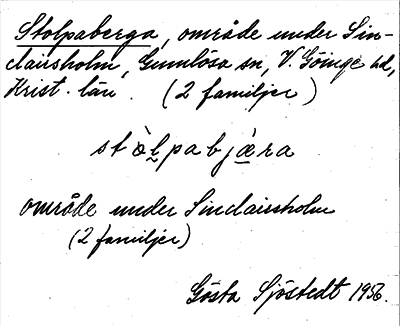 Stolpaberga, område under Sin-
clairsholm, Gumlösa sn, V. Göinge hd,
Krist. län. (2 familjer)
stòl̥pabjæ̀ra
område under Sinclairsholm
(2 familjer)
Gösta Sjöstedt 1956.